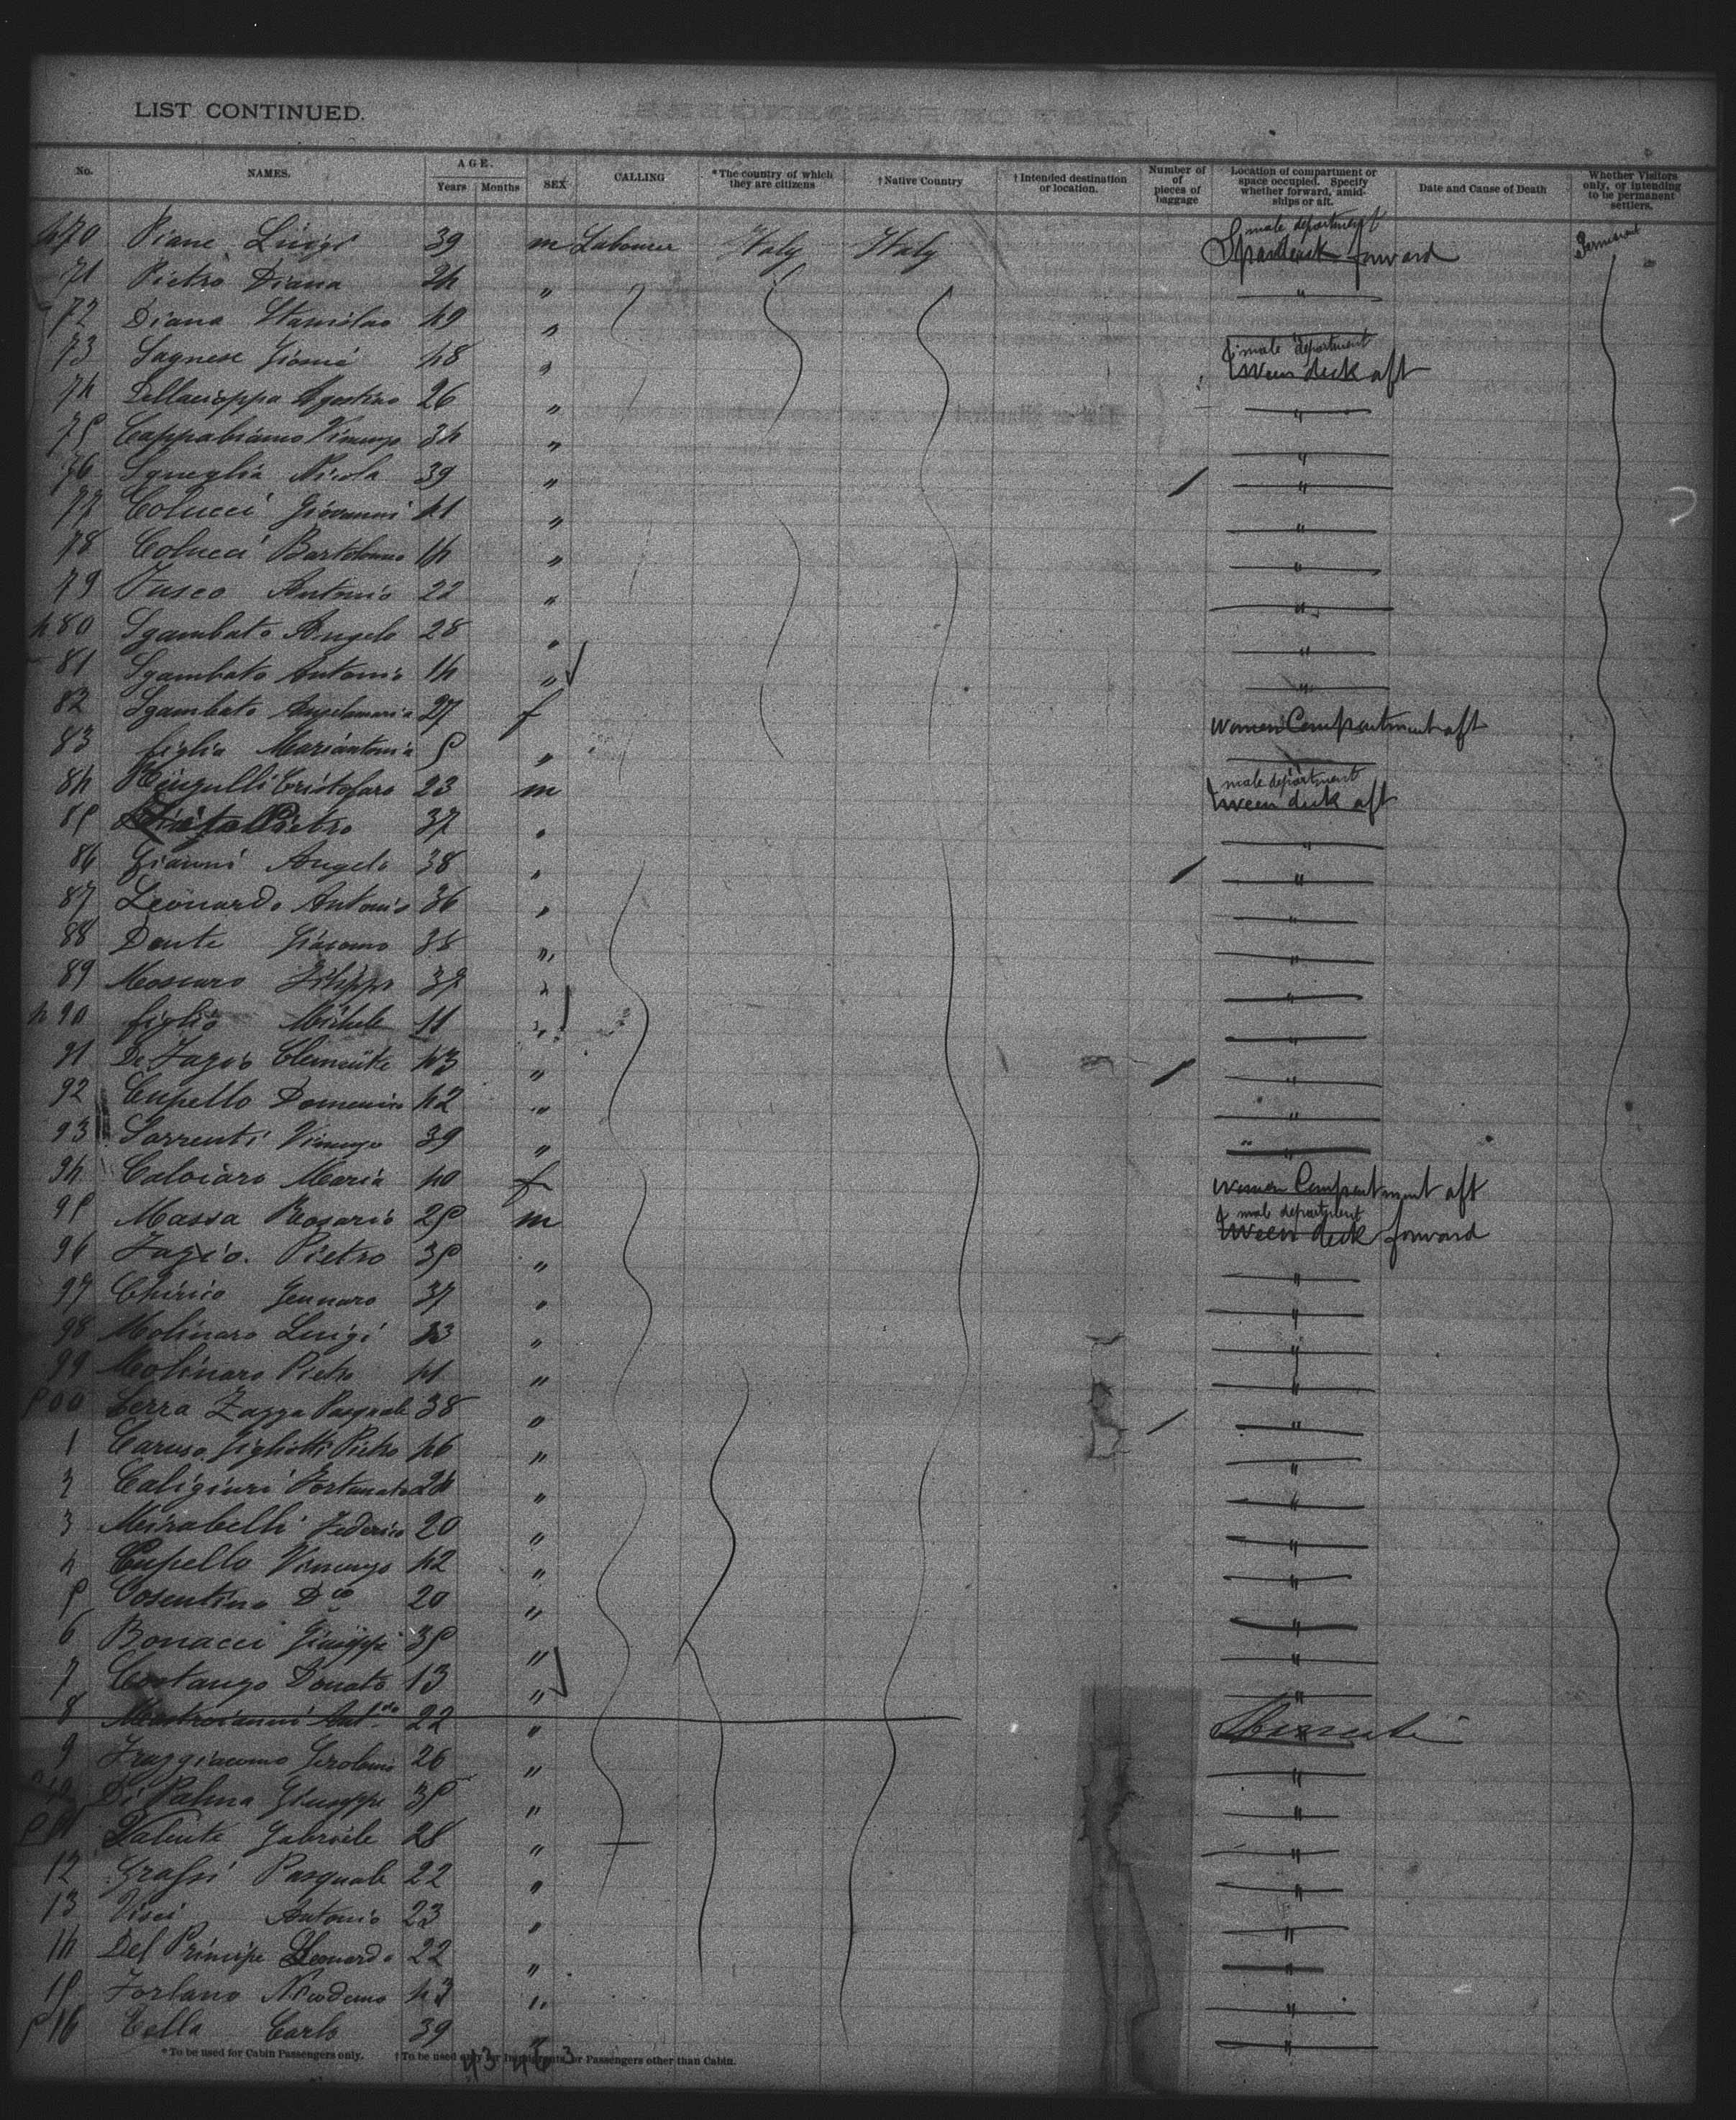 LIST CONTINUED.
No. NAMES. AGE. Years Months SEX CALLING *The country of which they are citizens †Native Country †Intended destination or location. Number of of pieces of baggage Location of compartment or space occupied. Specify whether forward, amidships or aft. Date and Cause of Death Whether Visitors only, or intending to be permanent settlers.
470 Piane Luigi 39 m Labourer Italy Italy male department Spardeck forward Permanent
71 Pietro Diana 24 " "
72 Diana Stanislao 49 "
73 Sagnese 48 " male department tween deck aft
74 Dellacioppa Agostino 26 " "
75 Cappabianco Vincenzo 34 " "
76 Sgueglia Nicola 39 " "
77 Colucci Giovanni 41 " "
78 Colucci Bartolomeo 14 " "
79 Fusco Antonio 22 " "
480 Sgambato Angelo 28 " "
81 Sgambato Antonio 14 " "
82 Sgambato Angelamaria 27 f women Compartment aft
83 figlia Mariantonia 5 "
84 Cristofaro 23 m male department tween deck aft
85 Pietro 37 " "
86 Gianni Angelo 38 " "
87 Leonardo Antonio 36 " "
88 Dente Giacomo 38 " "
89 Moscaro Filippo 32 " "
490 figlio Michele 11 " "
91 De Fazio Clemente 43 " "
92 Cupello Domenico 42 " "
93 Sorrenti Vincenzo 39 " "
94 Caloiaro Maria 40 f women Compartment aft
95 Massa Rosario 25 m male department tween deck forward
96 Fazio. Pietro 35 " "
97 Chirico Gennaro 37 " "
98 Molinaro Luigi 33 " "
99 Molinaro Pietro 41 " "
500 Serra Zazza Pasquale 38 " "
1 Caruso Gigliotti Pietro 46 " "
2 Caligiuri Fortunato 24 " "
3 Mirabelli Federico 20 " "
4 Cupello Vincenzo 42 " "
5 Cosentino Dco 20 " "
6 Bonacci Giuseppe 35 " "
7 Costanzo Donato 13 " "
8 Mastroianni Antnio 22 "
9 Fraggiacomo Gerolamo 26 " "
510 Di Palma Giuseppe 35 " "
511 Valente Gabriele 28 " "
12 Grassi Pasquale 22 " "
13 Visci Antonio 23 " "
14 Del Principe Leonardo 22 " "
15 Forlano Nicodemo 43 " "
516 Cella Carlo 39 "
*To be used for Cabin Passengers only. †To be used only for Immigrants, or Passengers other than Cabin.
43 46 3